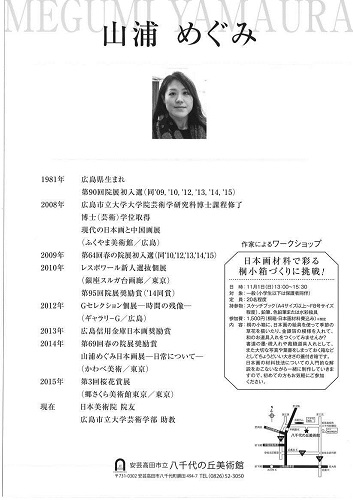 MEGUMI YAMAURA
山浦 めぐみ
1981年 広島県生まれ
第90回院展初入選(同'09,'10,'12,'13,'14,'15)
2008年 広島市立大学大学院芸術学研究科博士課程修了
博士(芸術)学位取得
現代の日本画と中国画展
(ふくやま美術館／広島)
2009年 第64回春の院展初入選(同'10,'12,'13,'14,'15)
2010年 レスポワール新人選抜個展
(銀座スルガ台画廊／東京)
第95回院展奨励賞('14同賞)
2012年 Gセレクション個展―時間の残像―
(ギャラリーG／広島)
2013年 広島信用金庫日本画奨励賞
2014年 第69回春の院展奨励賞
山浦めぐみ日本画展―日常について―
(かわべ美術／東京)
2015年 第3回桜花賞展
(郷さくら美術館東京／東京)
現在 日本美術院 院友
広島市立大学芸術学部 助教
作家によるワークショップ
日本画材料で彩る
桐小箱づくりに挑戦!
日 時：11月1日(日)13:00～15:30
対 象：一般(小学生以下は保護者同伴)
定 員：20名程度
持参物：スケッチブック(A4サイズ以上～F8号サイズ
程度)、鉛筆、色鉛筆または水彩絵具
参加費：1,600円(桐箱・日本画材料費込み)
内 容：桐の小箱に、日本画の絵具を使って季節の
草花を描いたり、金銀箔の模様を入れて、
和のお道具入れをつくってみませんか?
ください。
安芸高田市立 八千代の丘美術館
〒731-0302 安芸高田市八千代町勝田494-7 TEL (0826)52-3050
八千代の丘美術館